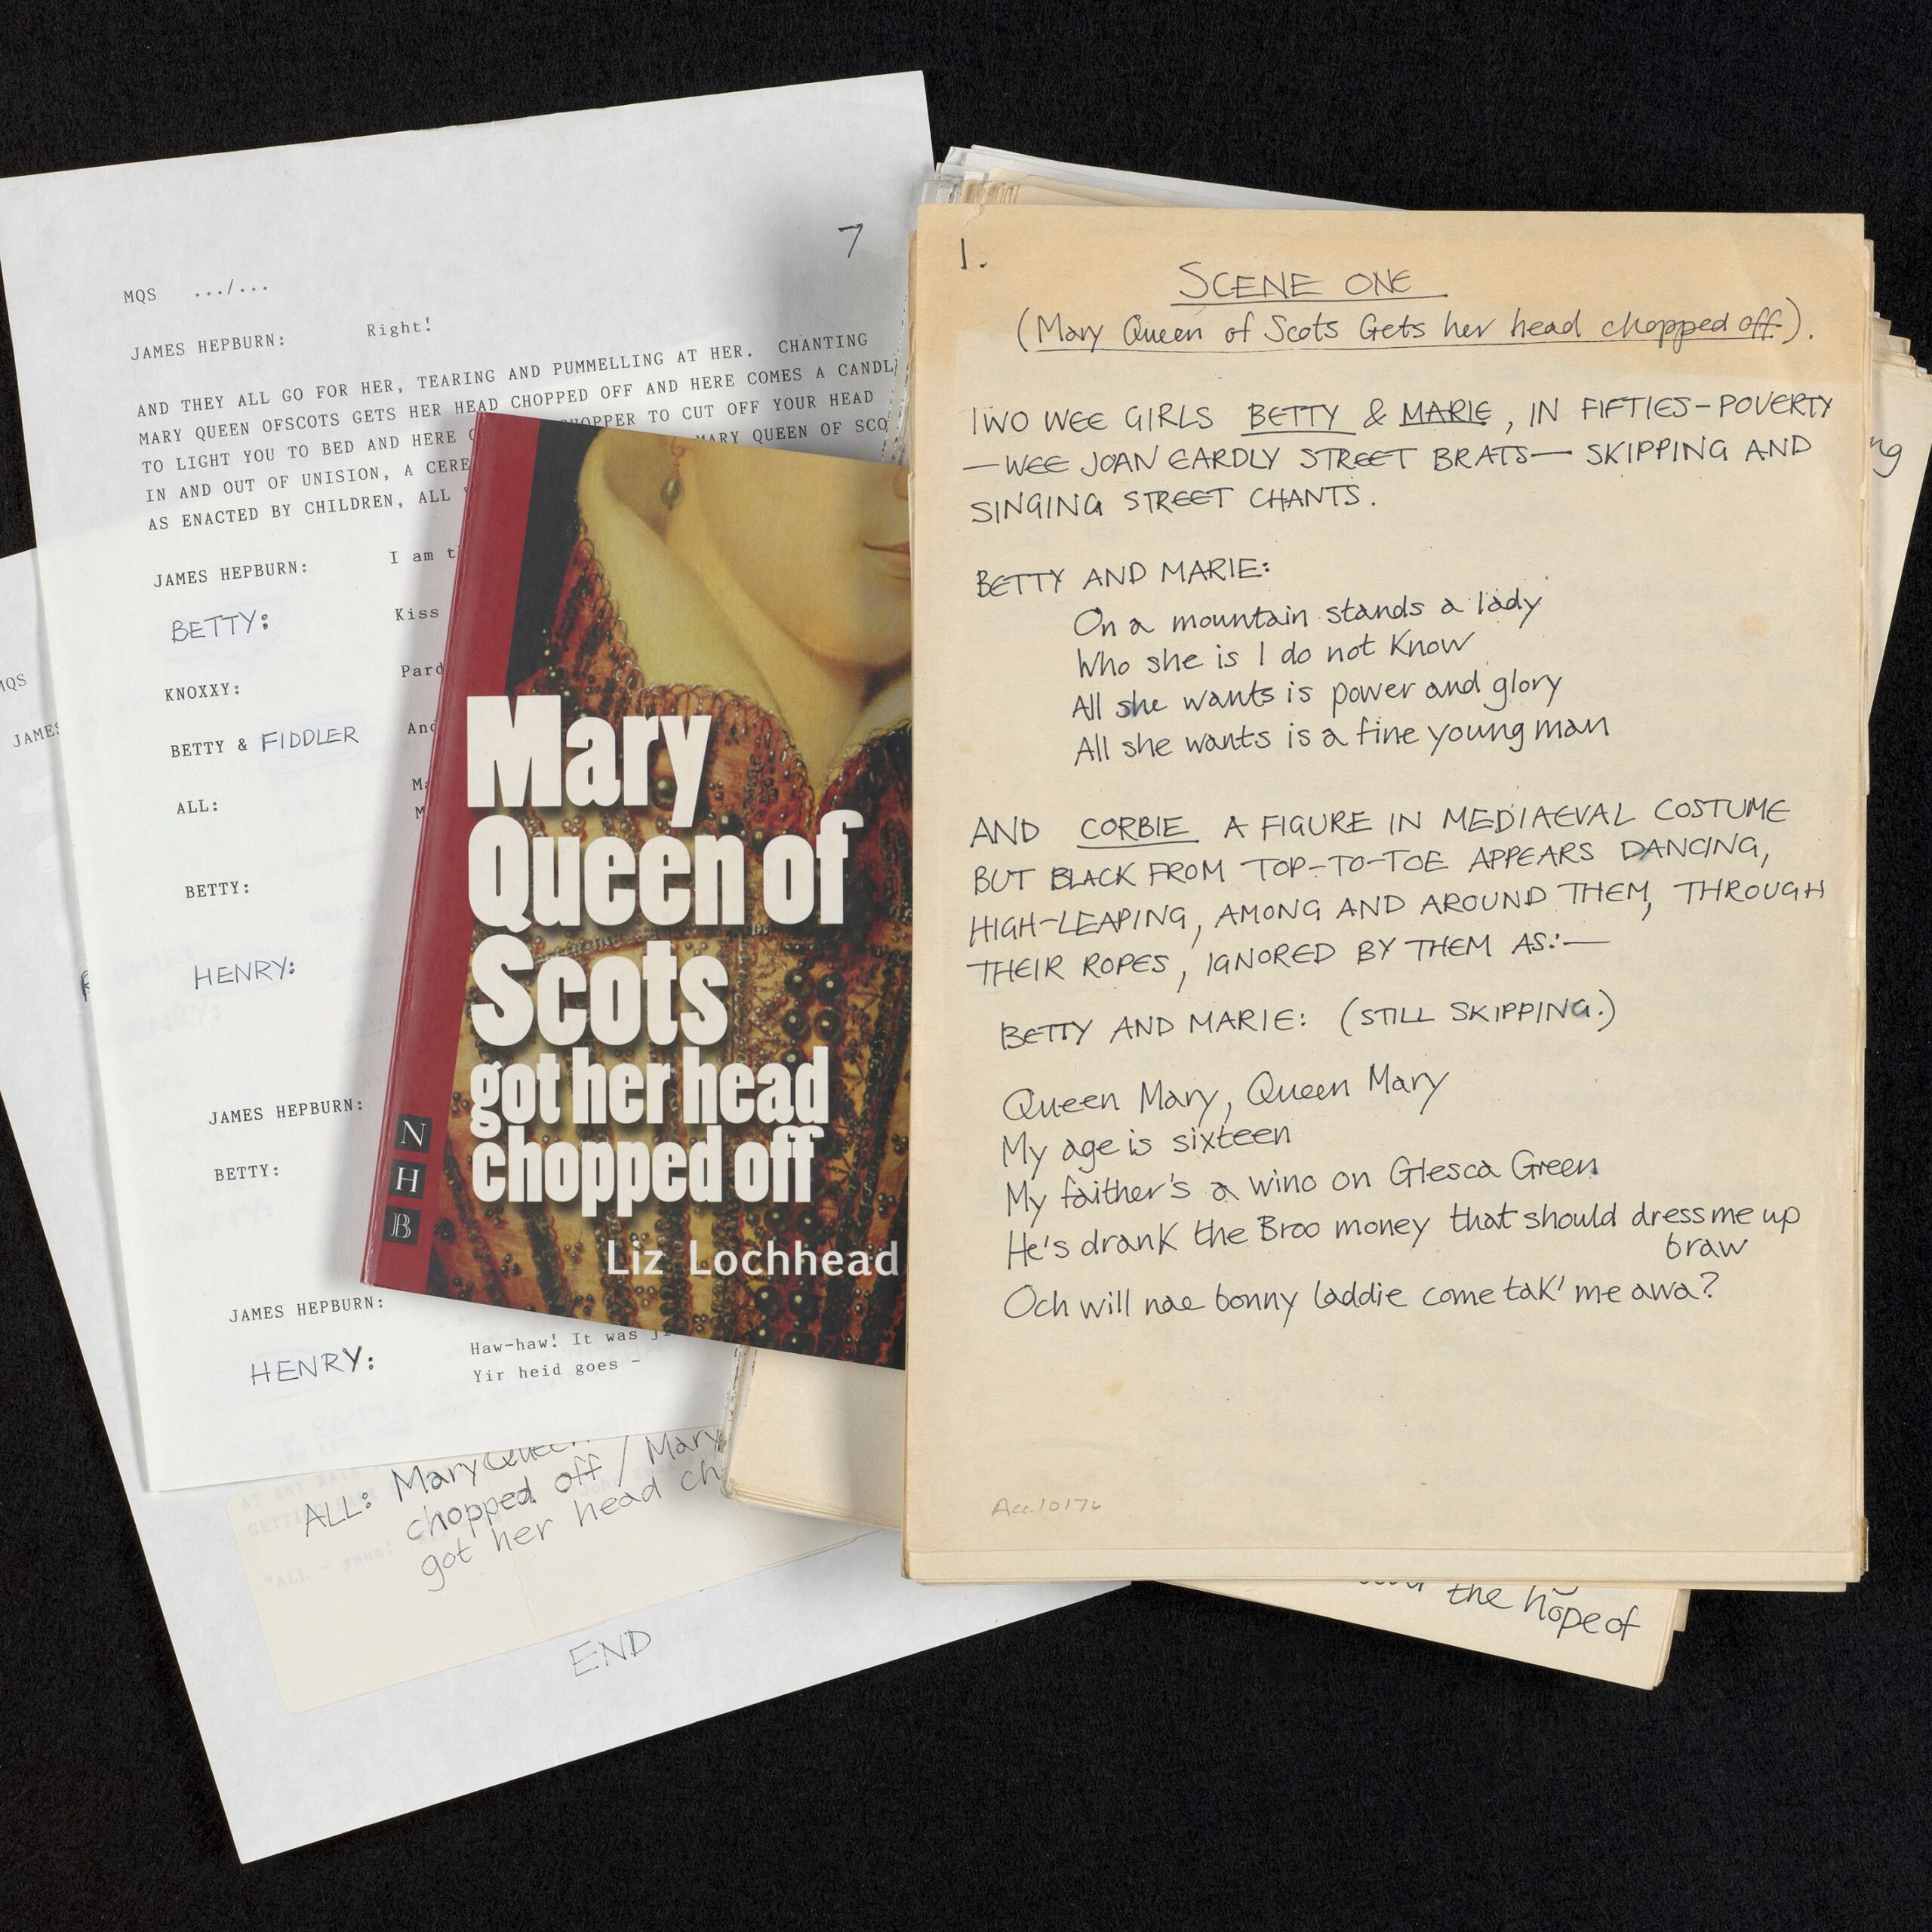 7
MQS .../...
JAMES HEPBURN: Right!
AND THEY ALL GO FOR HER, TEARING AND PUMMELLING AT HER. CHANTING
MARY QUEEN OFSCOTS GETS HER HEAD CHOPPED OFF AND HERE COMES A CANDL
TO LIGHT YOU TO BED AND HERE CHOPPER TO CUT OFF YOUR HEAD
IN AND OUT OF UNISION, A CERE MARY QUEEN OF SCO
AS ENACTED BY CHILDREN, ALL
JAMES HEPBURN: I am
BETTY: Kiss
KNOXXY: Pard
BETTY & FIDDLER And
ALL:
BETTY:
HENRY:
JAMES HEPBURN:
BETTY:
JAMES HEPBURN:
Haw-haw! It was
HENRY: Yir heid goes -
MQS
JAMES
ALL: Mary Queen / Mary
chopped off
got her head ch
END
Mary
Queen of
Scots
got her head
chopped off
Liz Lochhead
N
H
B
1.
SCENE ONE
(Mary Queen of Scots Gets her head chopped off).
TWO WEE GIRLS BETTY & MARIE, IN FIFTIES-POVERTY
—WEE JOAN EARDLY STREET BRATS— SKIPPING AND
SINGING STREET CHANTS.
BETTY AND MARIE:
On a mountain stands a lady
Who she is I do not Know
All she wants is power and glory
All she wants is a fine young man
AND CORBIE A FIGURE IN MEDIAEVAL COSTUME
BUT BLACK FROM TOP-TO-TOE APPEARS DANCING,
HIGH-LEAPING, AMONG AND AROUND THEM, THROUGH
THEIR ROPES, IGNORED BY THEM AS:—
BETTY AND MARIE: (STILL SKIPPING.)
Queen Mary, Queen Mary
My age is sixteen
My faither's a wino on Glesca Green
He's drank the Broo money that should dress me up
braw
Och will nae bonny laddie come tak' me awa?
Acc.10176
the hope of
ng